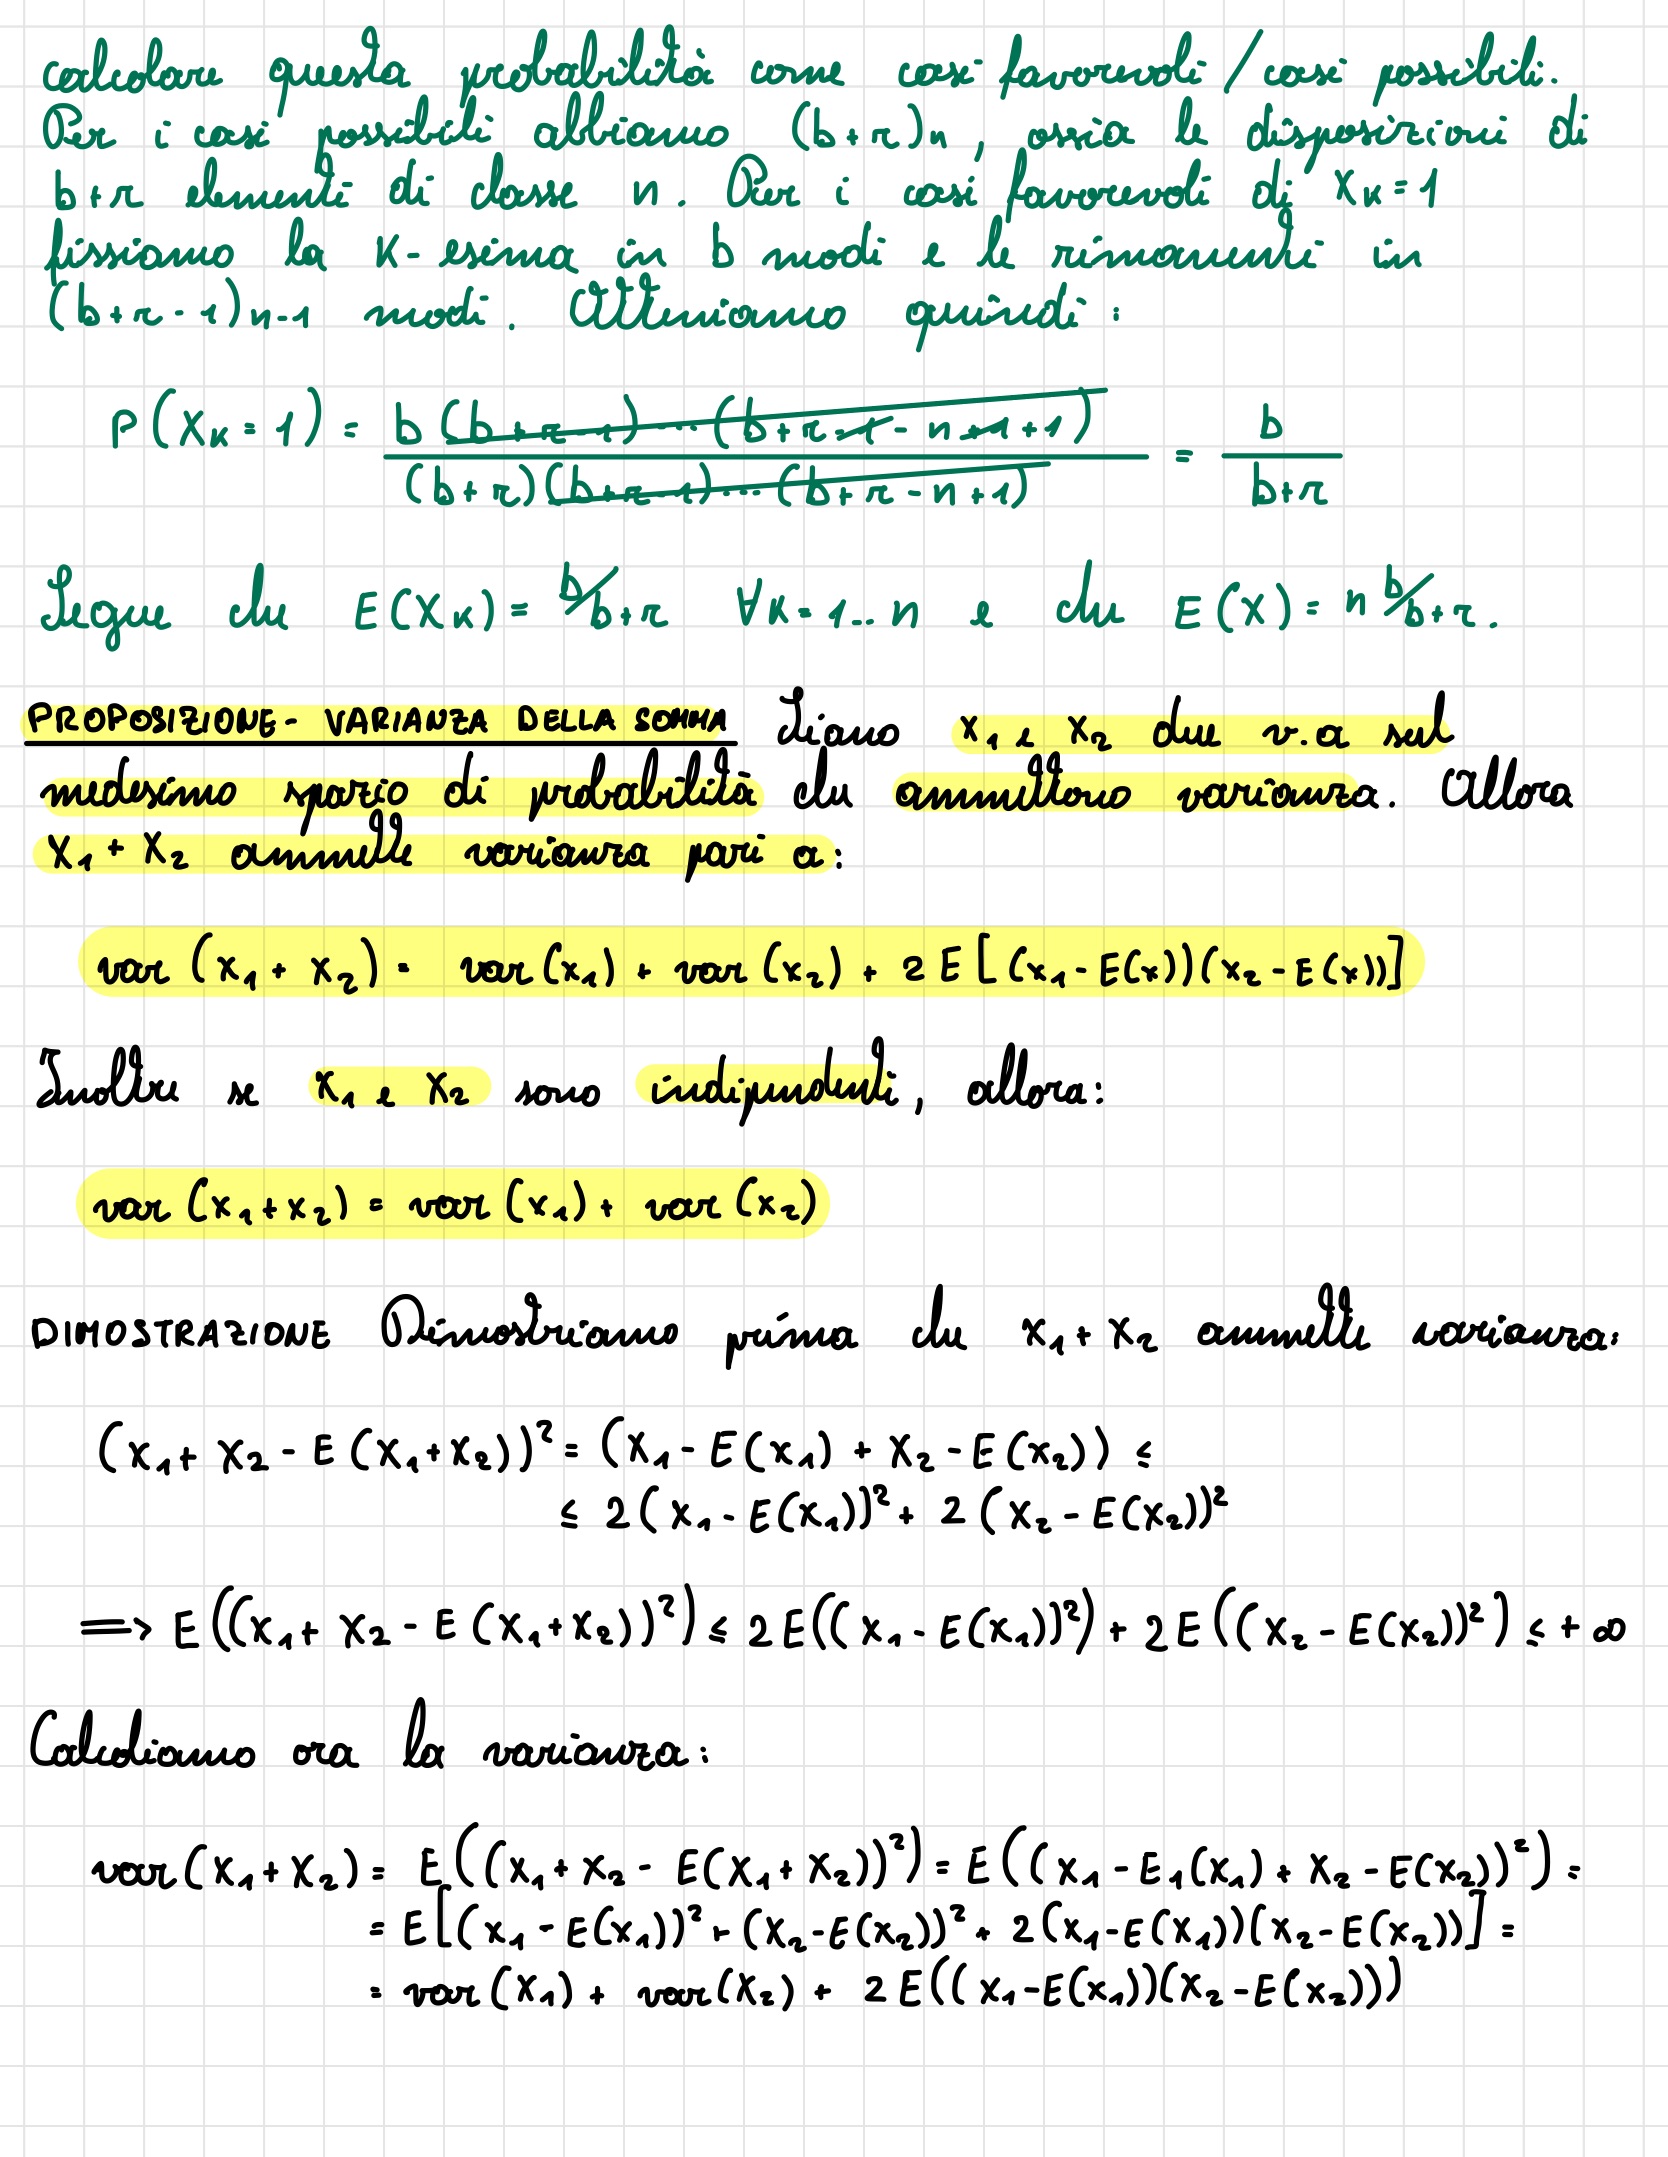 calcolare questa probabilità come casi favorevoli / casi possibili.
Per i casi possibili abbiamo (b+r)n, ossia le disposizioni di
b+r elementi di classe n. Per i casi favorevoli di Xk=1
fissiamo la k-esima in b modi e le rimanenti in
(b+r-1)n-1 modi. Otteniamo quindi:
P(Xk=1) = b(b+r-1)...(b+r-1-n+1+1) / (b+r)(b+r-1)...(b+r-n+1) = b / b+r
Segue che E(Xk) = b/b+r ∀k=1..n e che E(X) = n b/b+r.
PROPOSIZIONE - VARIANZA DELLA SOMMA Siano x₁ e x₂ due v.a sul
medesimo spazio di probabilità che ammettono varianza. Allora
X₁ + X₂ ammette varianza pari a:
var(x₁ + x₂) = var(x₁) + var(x₂) + 2E[(x₁-E(x))(x₂-E(x))]
Inoltre se x₁ e x₂ sono indipendenti, allora:
var(x₁+x₂) = var(x₁) + var(x₂)
DIMOSTRAZIONE Dimostriamo prima che x₁ + x₂ ammette varianza:
(x₁ + x₂ - E(x₁+x₂))² = (x₁ - E(x₁) + x₂ - E(x₂)) ≤
≤ 2(x₁ - E(x₁))² + 2(x₂ - E(x₂))²
⟹ E((x₁ + x₂ - E(x₁+x₂))²) ≤ 2E((x₁ - E(x₁))²) + 2E((x₂ - E(x₂))²) ≤ +∞
Calcoliamo ora la varianza:
var(x₁+x₂) = E((x₁+x₂ - E(x₁+x₂))²) = E((x₁ - E₁(x₁) + x₂ - E(x₂))²) =
= E[(x₁ - E(x₁))² + (x₂-E(x₂))² + 2(x₁-E(x₁))(x₂-E(x₂))] =
= var(x₁) + var(x₂) + 2E((x₁-E(x₁))(x₂-E(x₂)))